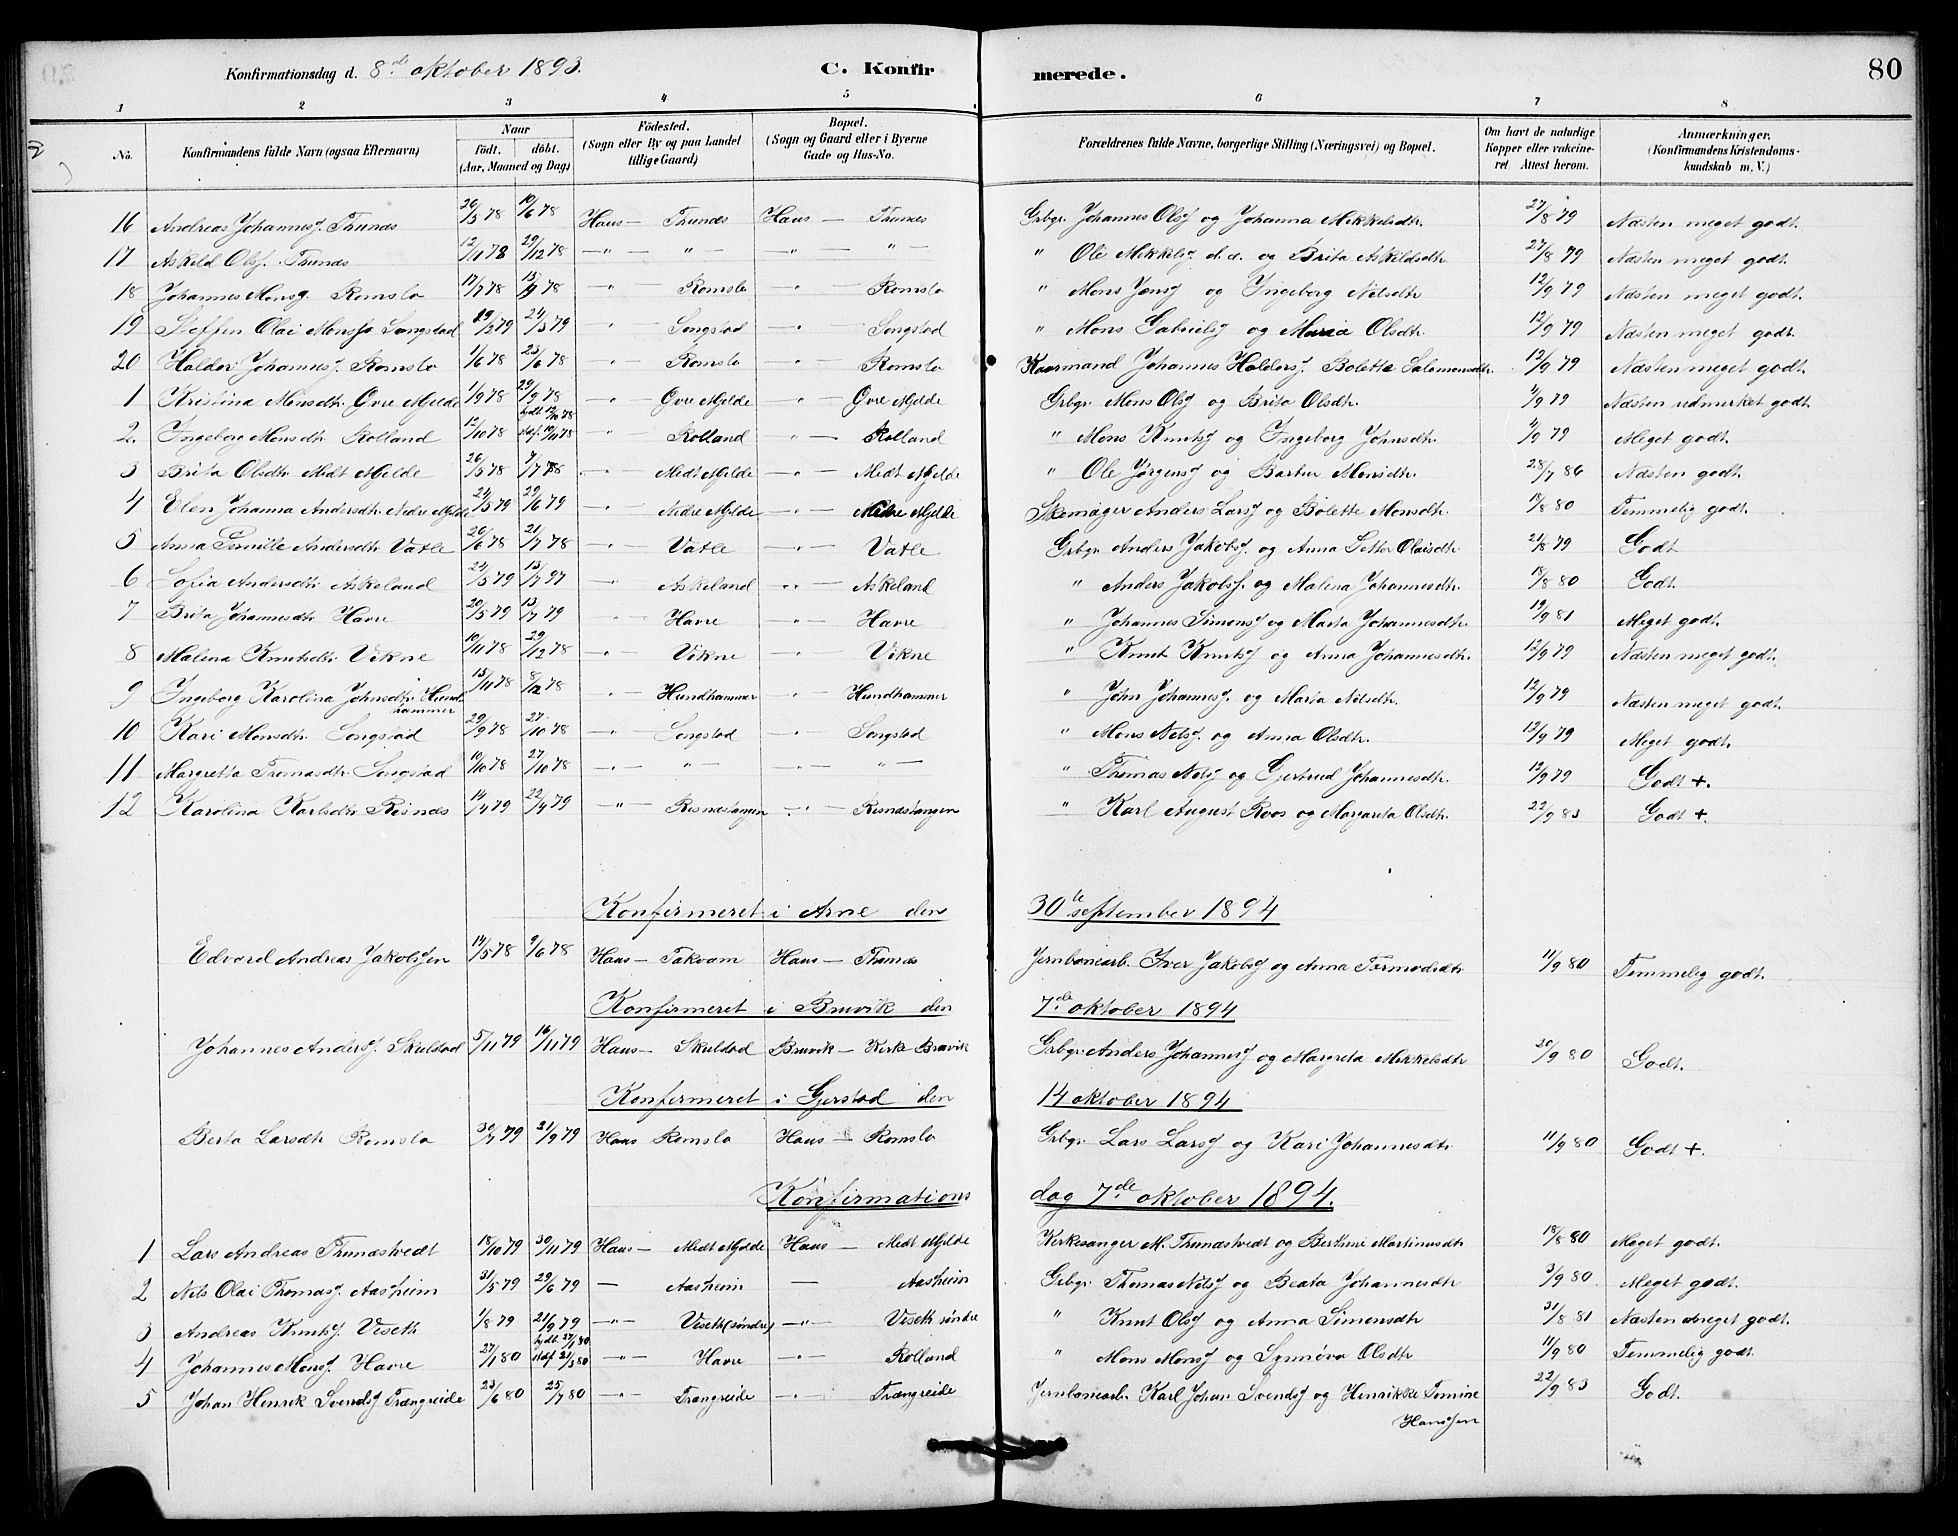 Konfirmationsdag d. 8de oktober 1893. C. Konfirmerede. 80
1 2 3 4 5 6 7 8
No. Konfirmandens fulde Navn (ogsaa Efternavn) Naar födt. döbt. (Aar, Maaned og Dag) Födested. (Sogn eller By og paa Landet tillige Gaard) Bopæl. (Sogn og Gaard eller i Byerne Gade og Hus-No. Forældrenes fulde Navne, borgerlige Stilling (Næringsvei) og Bopæl. Om havt de naturlige Kopper eller vakcineret Attest herom. Anmærkninger. (Konfirmandens Kristendomskundskab m. V.)
16 Andreas Johannesj. Tunæs 26/5 78 10/6 78 Haus — Tunæs Haus — Tunæs Grbgr. Johannes Olsj og Johanna Mikkelsdtr. 27/8 79 Næsten meget godt.
17 Askeld Olsj. Tunæs 12/11 78 29/12 78 —"— "— —"— "— " Ole Mikkelsj d. æ. og Brita Askeldsdtr 27/8 79 Næsten meget godt.
18 Johannes Monsj. Romslo 17/7 78 78 —"— Romslo —"— Romslo " Mons Jensj og Ingeborg Nilsdtr 12/9 79 Næsten meget godt.
19 Steffen Olai Monssj Songstad 19/2 79 24/3 79 —"— Songstad —"— Songstad " Mons Gabrielsj og Maria Olsdtr. 12/9 79 Næsten meget godt.
20 Haldor Johannesj. Romslo 1/6 78 23/6 78 —"— Romslo —"— Romslo Kaarmand Johannes Haldorsj. Bolette Salomonsdtr. 12/9 79 Næsten meget godt.
1 Kristina Monsdtr. Øvre Mjelde 1/9 78 29/9 78 —"— Øvre Mjelde —"— Øvre Mjelde Grbgr. Mons Olsj og Brita Olsdtr. 11/9 79 Næsten udmerket godt
2. Ingeborg Monsdtr Rolland 12/10 78 hjdt. 12/10 78 stdf. 10/11 78 —"— Rolland —"— Rolland " Mons Knutsj og Ingeborg Johnsdtr. 11/9 79 Meget godt.
3 Brita Olsdtr Midt Mjelde 26/5 78 7/7 78 —"— Midt Mjelde —"— Midt Mjelde " Ole Jørgensj og Barbru Monsdtr. 28/7 86 Næsten godt.
4 Elen Johanna Andersdtr. Nedre Mjelde 24/5 79 29/6 79 —"— Nedre Mjelde —"— Nedre Mjelde Skomager Anders Larsj og Bolette Monsdtr. 18/8 80 Temmelig godt.
5 Anna Pernille Andersdtr Vatle 26/6 78 21/7 78 —"— Vatle —"— Vatle Grbgr. Anders Jakobsj. og Anna Petter Olaisdtr 21/8 79 Godt
6 Sofia Andersdtr. Askeland 24/5 79 13/7 97 —"— Askeland —"— Askeland " Anders Jakobsj. og Malena Johannesdtr. 18/8 80 Godt.
7 Brita Johannesdtr Havre 20/5 79 13/7 79 —"— Havre —"— Havre " Johannes Simonsj og Marta Johannesdtr. 19/9 81 Meget godt.
8 Malena Knutsdtr. Vikne 10/11 78 29/12 78 —"— Vikne —"— Vikne " Knut Knutsj og Anna Johannesdtr. 12/9 79 Næsten meget godt.
9 Ingeborg Karolina Johnsdtr. Hundhammer 13/11 78 8/12 78 —"— Hundhammer —"— Hundhammer " John Johannesj. og Marta Nilsdtr. 12/9 79 Næsten meget godt.
10 Kari Monsdtr. Songstad 29/9 78 27/10 78 —"— Songstad —"— Songstad " Mons Nilsj. og Anna Olsdtr. 12/9 79 Meget godt.
11 Margretta Tomasdtr. Songstad 10/10 78 27/10 78 —"— "— —"— "— " Thomas Nilsj og Gjertrud Johannesdtr. 12/9 79 Godt +.
12 Karolina Karlsdtr Risnæs 14/4 79 22/4 79 —"— Risnæstangen —"— Risnæstangen " Karl August Roos og Margareta Olsdtr. 22/9 83 Godt +.
Konfirmeret i Arne den 30te september 1894
Edvard Andreas Jakobsjen 14/5 78 9/6 78 Haus — Takvam Haus — Tunæs Jernbanearb. Iver Jakobsj og Anna Tormodsdtr 11/9 80 Temmelig godt.
Konfirmeret i Bruvik den 7de oktober 1894
Johannes Andersj. Skulstad 5/11 79 16/11 79 Haus — Skulstad Bruvik — Kirke Bruvik Grbgr. Anders Johannesj og Margreta Mikkelsdtr 20/9 80 Godt.
Konfirmeret i Gjerstad den 14 oktober 1894
Berta Larsdtr Romslo 30/7 79 21/9 79 Haus Romslo Haus — Romslo Grbgr. Lars Larsj og Kari Johannesdtr 11/9 80 Godt +.
Konfirmationsdag 7de oktober 1894.
1 Lars Andreas Tunæstvedt 18/10 79 30/11 79 Haus — Midt Mjelde Haus — Midt Mjelde Kirkesanger M. Tunæstvedt og Berthine Martinusdtr 18/8 80 Meget godt.
2 Nils Olai Thomasj. Aasheim 31/5 79 29/6 79 — Aasheim — Aasheim Grbgr. Thomas Nilsj og Beata Johannesdtr 3/9 80 Meget godt.
3 Andreas Knutsj. Viseth 1/8 79 21/9 79 —"— Viseth (søndre) —"— Viseth søndre " Knut Olsj og Anna Simonsdtr 31/8 81 Næsten meget godt.
4 Johannes Monsj. Havre 27/1 80 hjdt. 27/1 80 stdf. 21/3 80 —"— Havre —"— Rolland " Mons Monsj og Synnøva Olsdtr 11/9 80 Temmelig godt.
5 Johan Henrik Svendsj Trængreide 23/6 80 25/7 80 —"— Trængreide —"— Trængreide Jernbanearb. Karl Johan Svendsj og Henrikke Temine Hansjen 22/9 83 Godt.